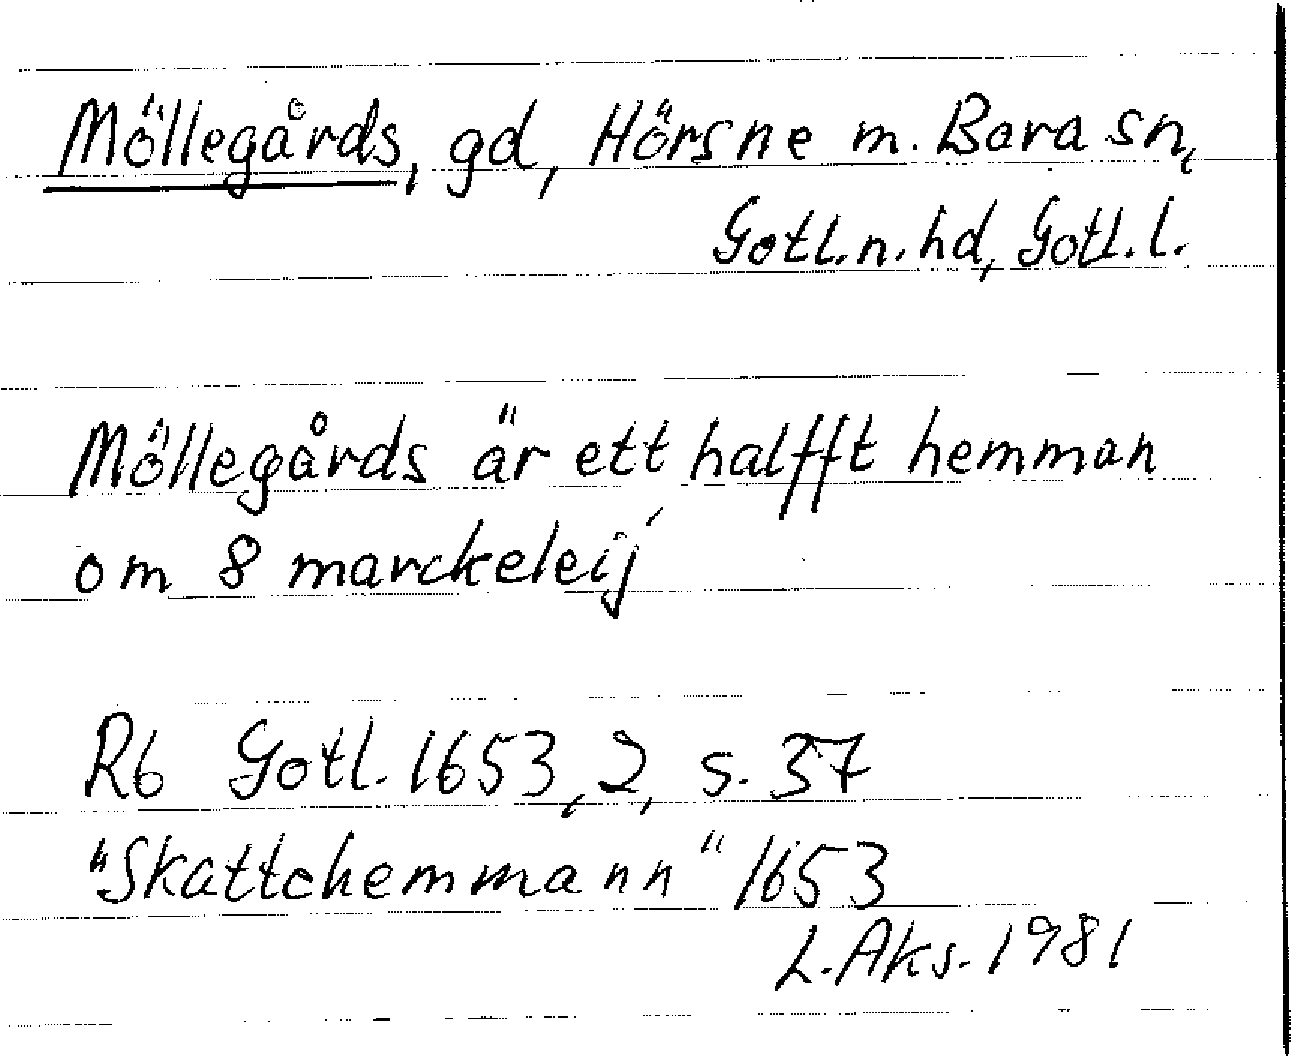 Möllegårds, gd, Hörsne m. Bara sn,
Gotl. n. hd, Gotl. l.
Möllegårds är ett halfft hemman
om 8 marckeleij
Rb Gotl. 1653, 2, s. 37
"Skattehemmann" 1653
L. Aks. 1981